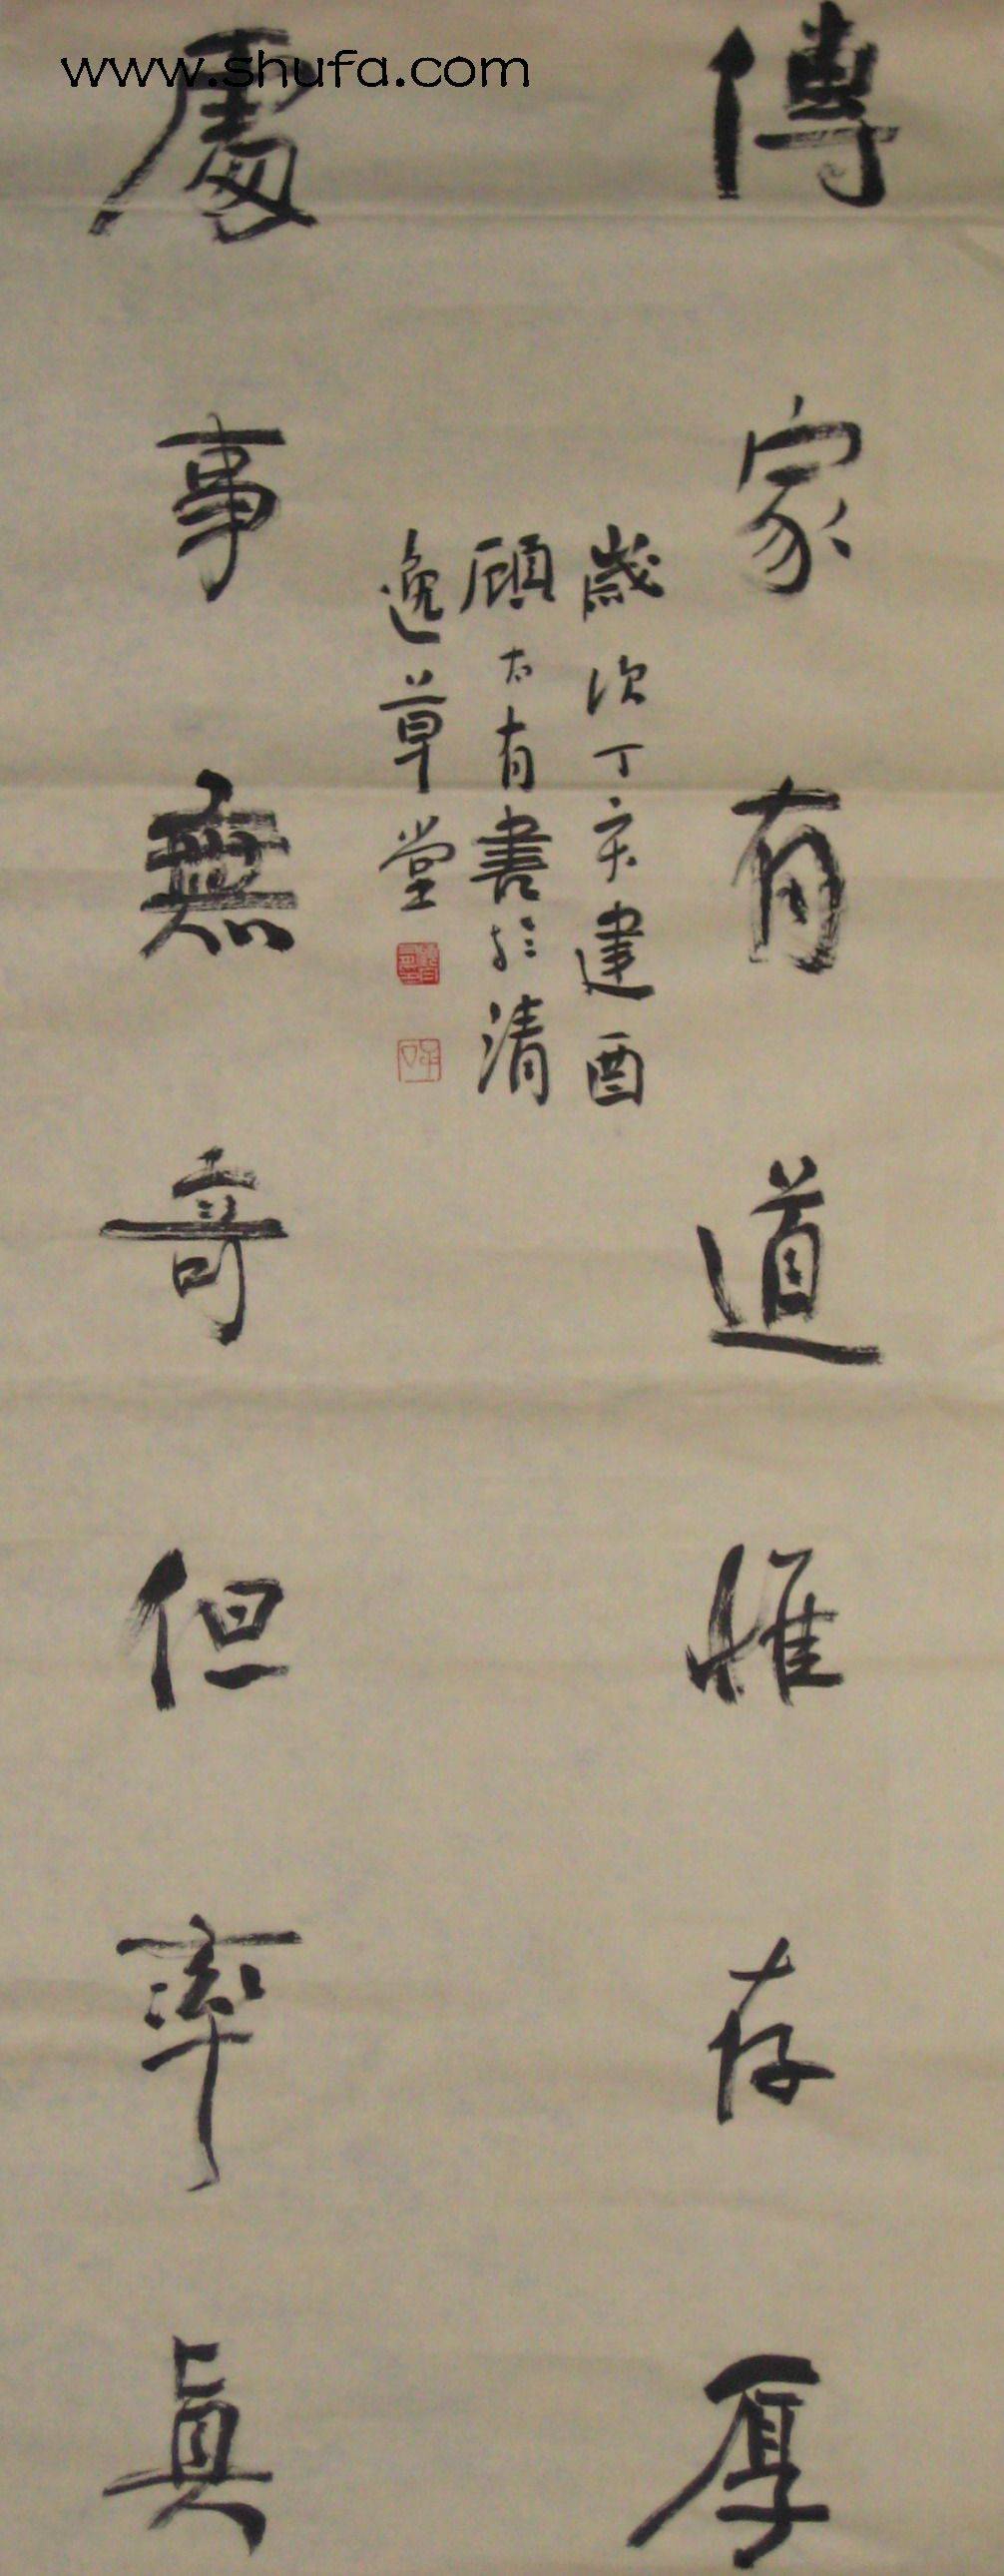 www.shufa.com
傳家有道惟存厚
歲次丁亥建酉
顧太有書於清
逸草堂
處事無奇但率真